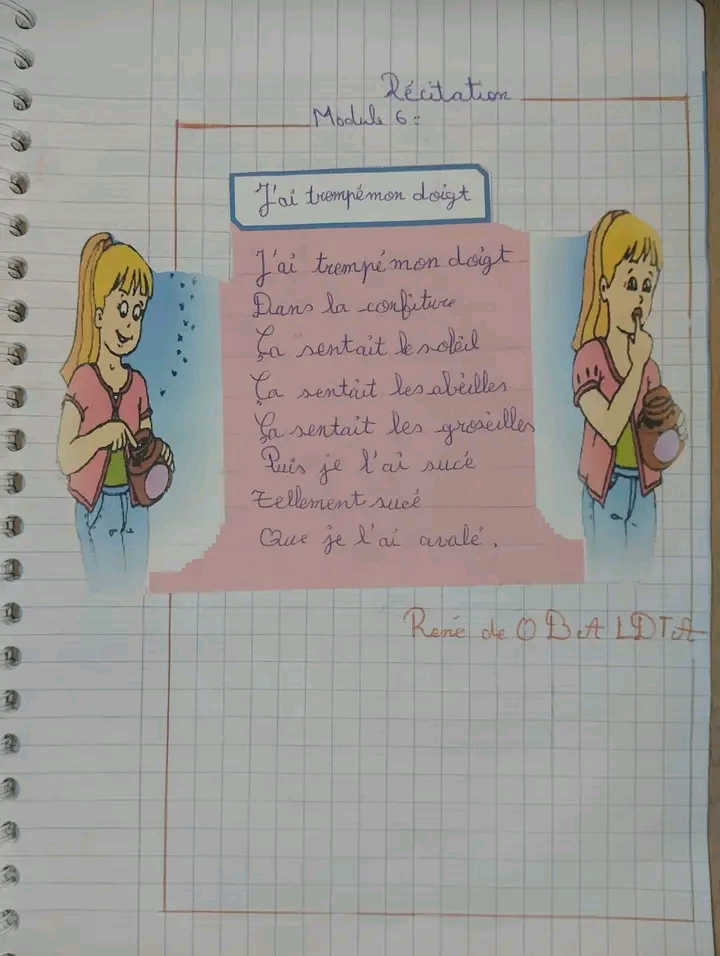 Récitation
Module 6 :
J'ai trempé mon doigt
J'ai trempé mon doigt
Dans la confiture
Ça sentait le soleil
Ça sentait les abeilles
Ça sentait les groseilles
Puis je l'ai sucé
tellement sucé
Que je l'ai avalé.
René de OBALDIA